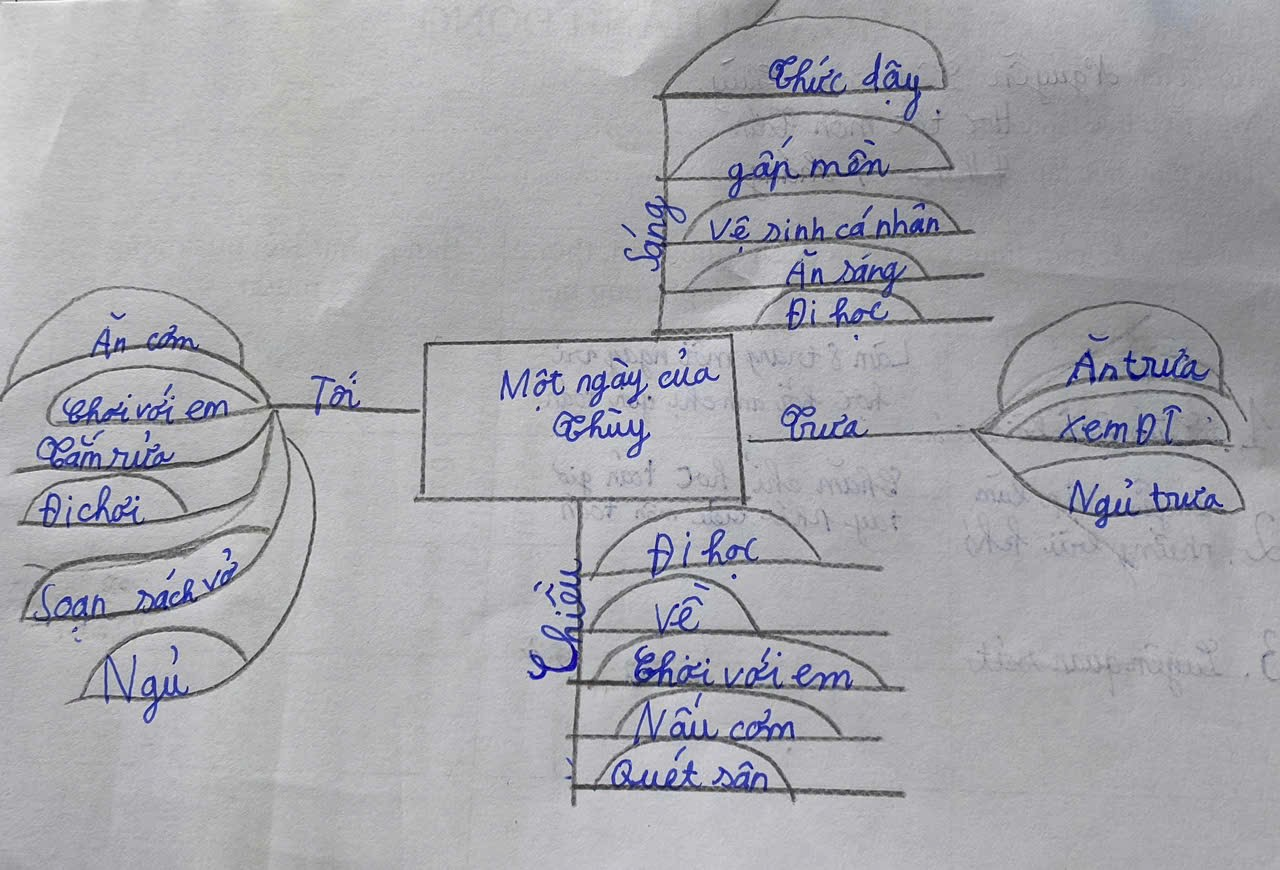 Một ngày của
Thùy
Sáng
Thức dậy
gấp mền
Vệ sinh cá nhân
Ăn sáng
Đi học
Trưa
Ăn trưa
Xem ĐT
Ngủ trưa
Chiều
Đi học
Về
Chơi với em
Nấu cơm
Quét sân
Tối
Ăn cơm
Chơi với em
Tắm rửa
Đi chơi
Soạn sách vở
Ngủ